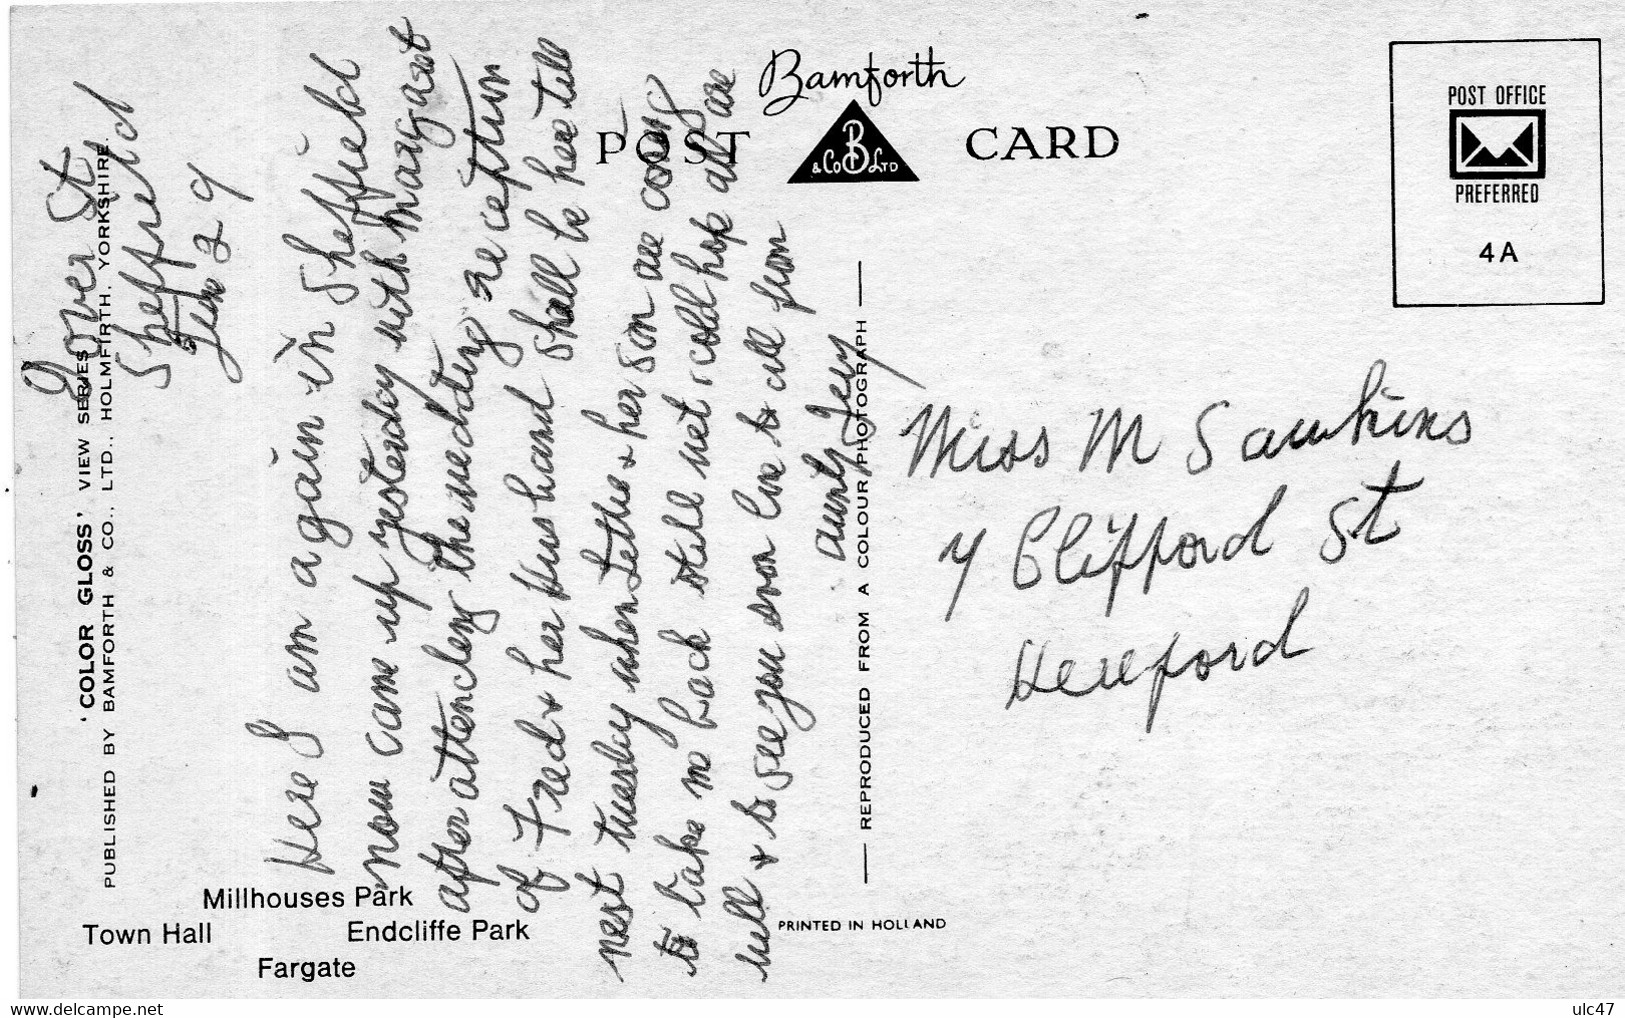 Gover St
Sheffield
June 29
Here I am again in Sheffield
now came up yesterday with Margaret
after attending the wedding reception
of Fred & her Husband shall be here till
next tuesday when Lettie & her son are coming
to take me back still wet & cold hope all are
well & to see you soon love to all from
aunty Jeny
Bamforth
POST CARD
B
& Co LTD
POST OFFICE
PREFERRED
4A
Miss M Sawkins
7 Clifford St
Hereford
'COLOR GLOSS' VIEW SERIES
PUBLISHED BY BAMFORTH & CO., LTD., HOLMFIRTH, YORKSHIRE.
REPRODUCED FROM A COLOUR PHOTOGRAPH
PRINTED IN HOLLAND
Millhouses Park
Town Hall Endcliffe Park
Fargate
www.delcampe.net
ulc47